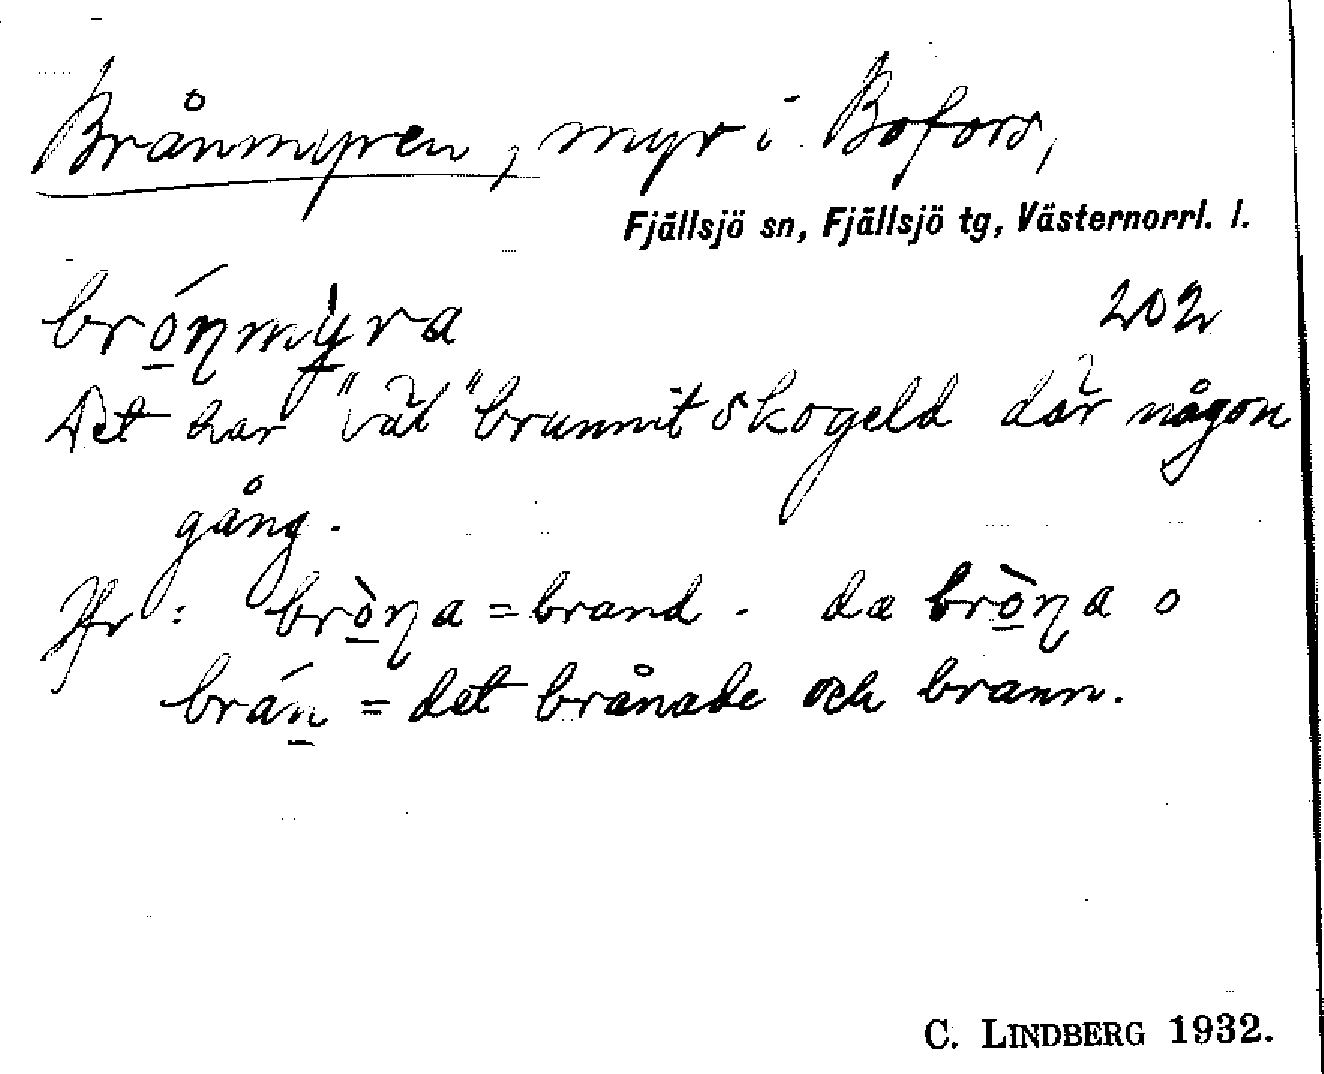 Brånmyren, myr i Bofors,
Fjällsjö sn, Fjällsjö tg, Västernorrl. l.
brǫ́ŋmỳra
202
Det har "väl" brunnit skogeld där någon
gång.
Jfr: brǫ̀ŋa = brand. dæ brǫ̀ŋa o
brán̲ = det brånade och brann.
C. LINDBERG 1932.